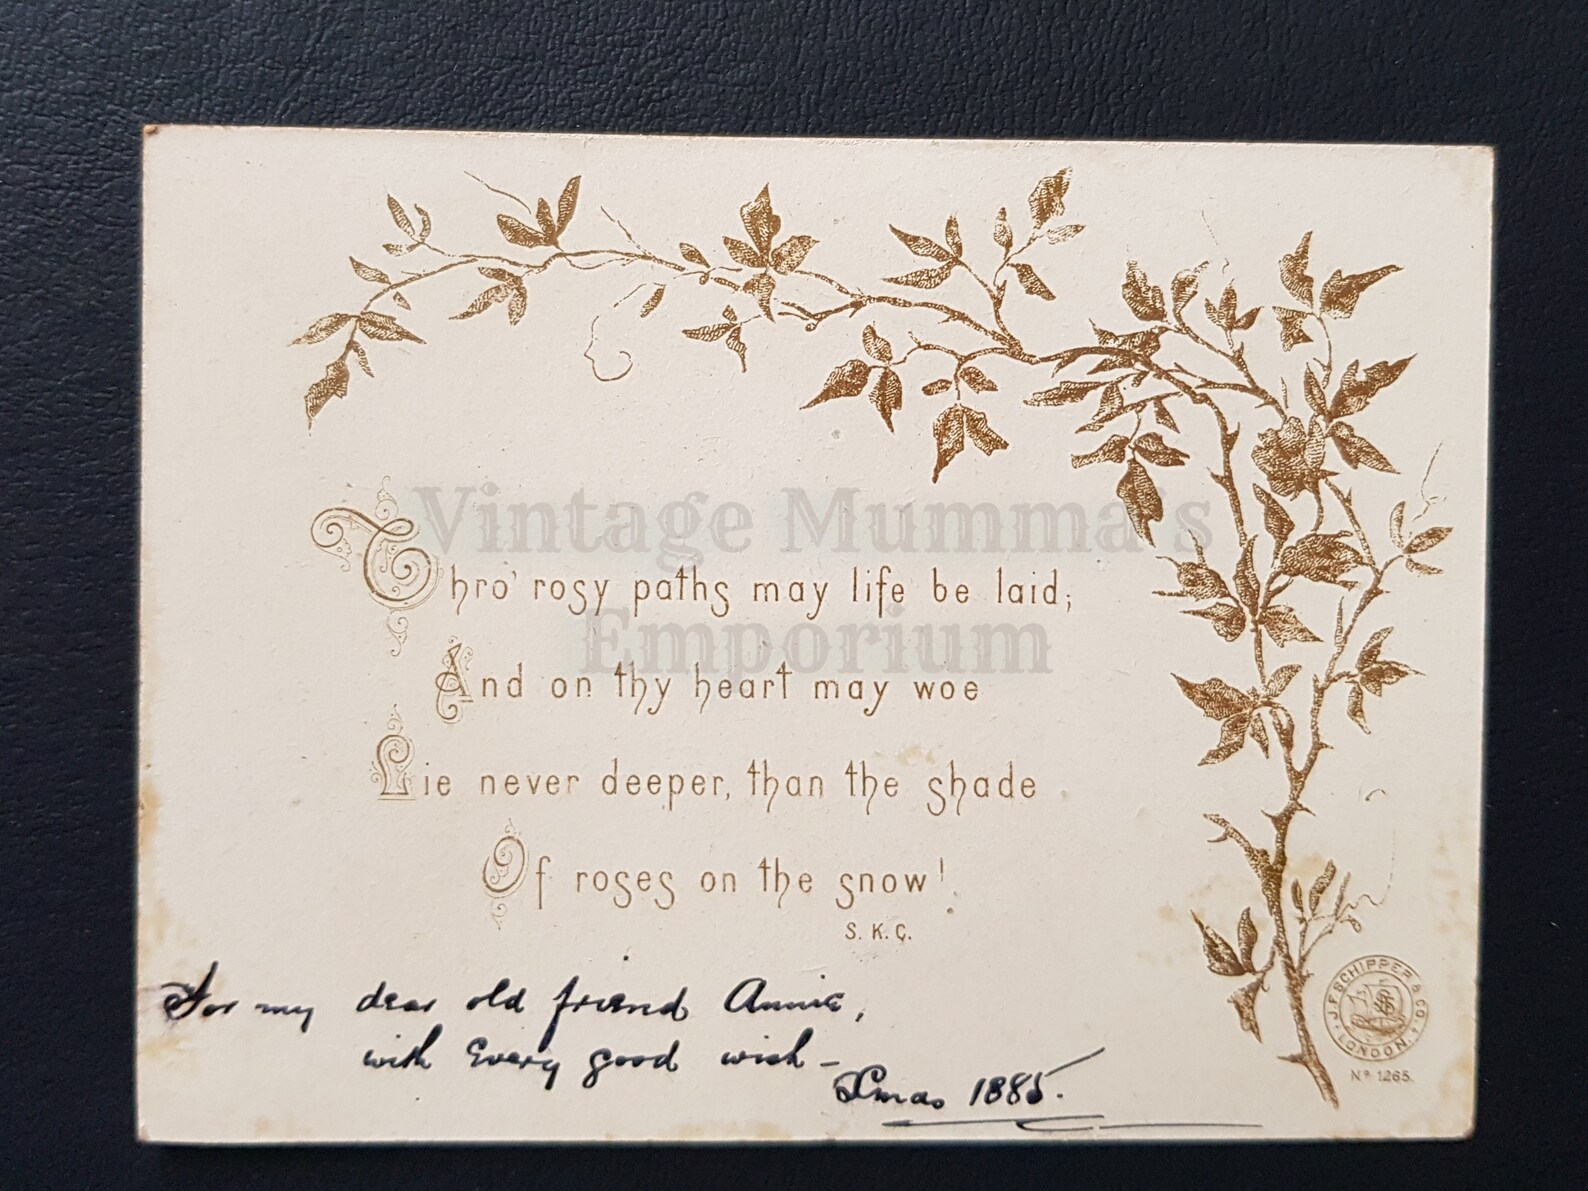 Vintage Mumma's
Emporium
Thro' rosy paths may life be laid;
And on thy heart may woe
Lie never deeper, than the shade
Of roses on the snow!
S. K. C.
For my dear old friend Annie,
with Every good wish –
Xmas 1885.
J. F. SCHIPPER & CO.
LONDON.
Nº 1265.